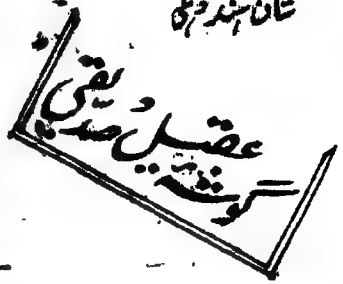 شان ہند دہلی
گوشۂ
عقیل صدیقی